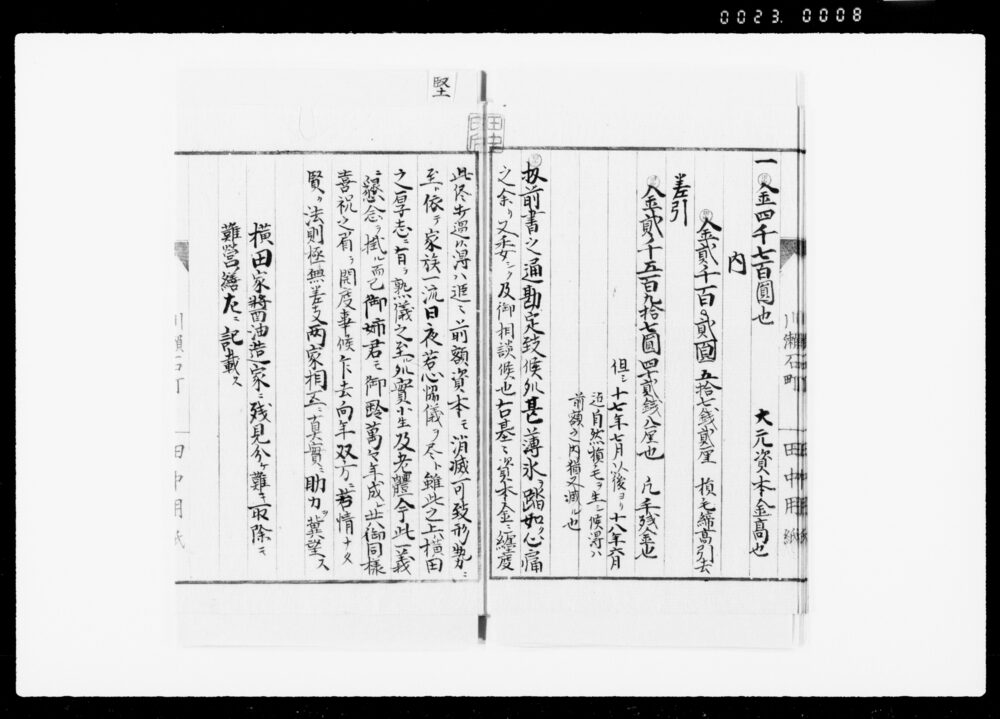 0023. 0008
一 金四千七百圓也 大元資本金高也
内
金貳千百〇貳圓五拾七錢貳厘 損毛締高引去
差引
金貳千五百九拾七圓四十貳錢八厘也 凡手残金也
但シ十七年七月以後ヨリ十八年六月
迄自然損毛ヲ生シ候得ハ
前額之内猶又減ル也
扨前書之通勘定致候処甚薄氷ヲ踏如ク心痛
之余リ又々及御相談候也右基ニ資本金ニ纏度
此侭打過候得ハ追々前額資本モ消滅可致形勢ニ
至ル依テ家族一流日夜苦心協議ヲ尽ト雖此之上横田
之厚志ニ有ル熟儀之至ル処實小生及老體今此一義
ニ懇念ヲ拭ル而已御姉君ニモ御齢萬々年成ル此御同様
喜祝之眉ヲ開度事候乍去向年双方ニ苦情ナク
賢ク法則極無差支両家相互ニ真實ニ助力ヲ冀望ス
横田家醤油造家ニ残見分ケ難モ取除モ
難営繕左ニ記載ス
川瀬石町 田中用紙
川瀬石町 田中用紙
堅